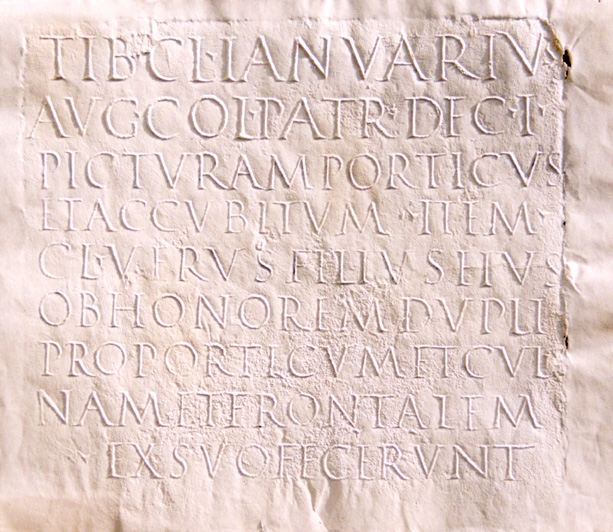 TIB·CL·IANVARIV·
AVGCOL·PATR·DEC·I·
PICTVRAM PORTICVS
ET ACCVBITVM · ITEM·
CL·VERVS FILIVS HVS
OB HONOREM DVPLI
PRO PORTICVM ET CVL
NAM ET FRONTALEM
EX SVO FECERVNT